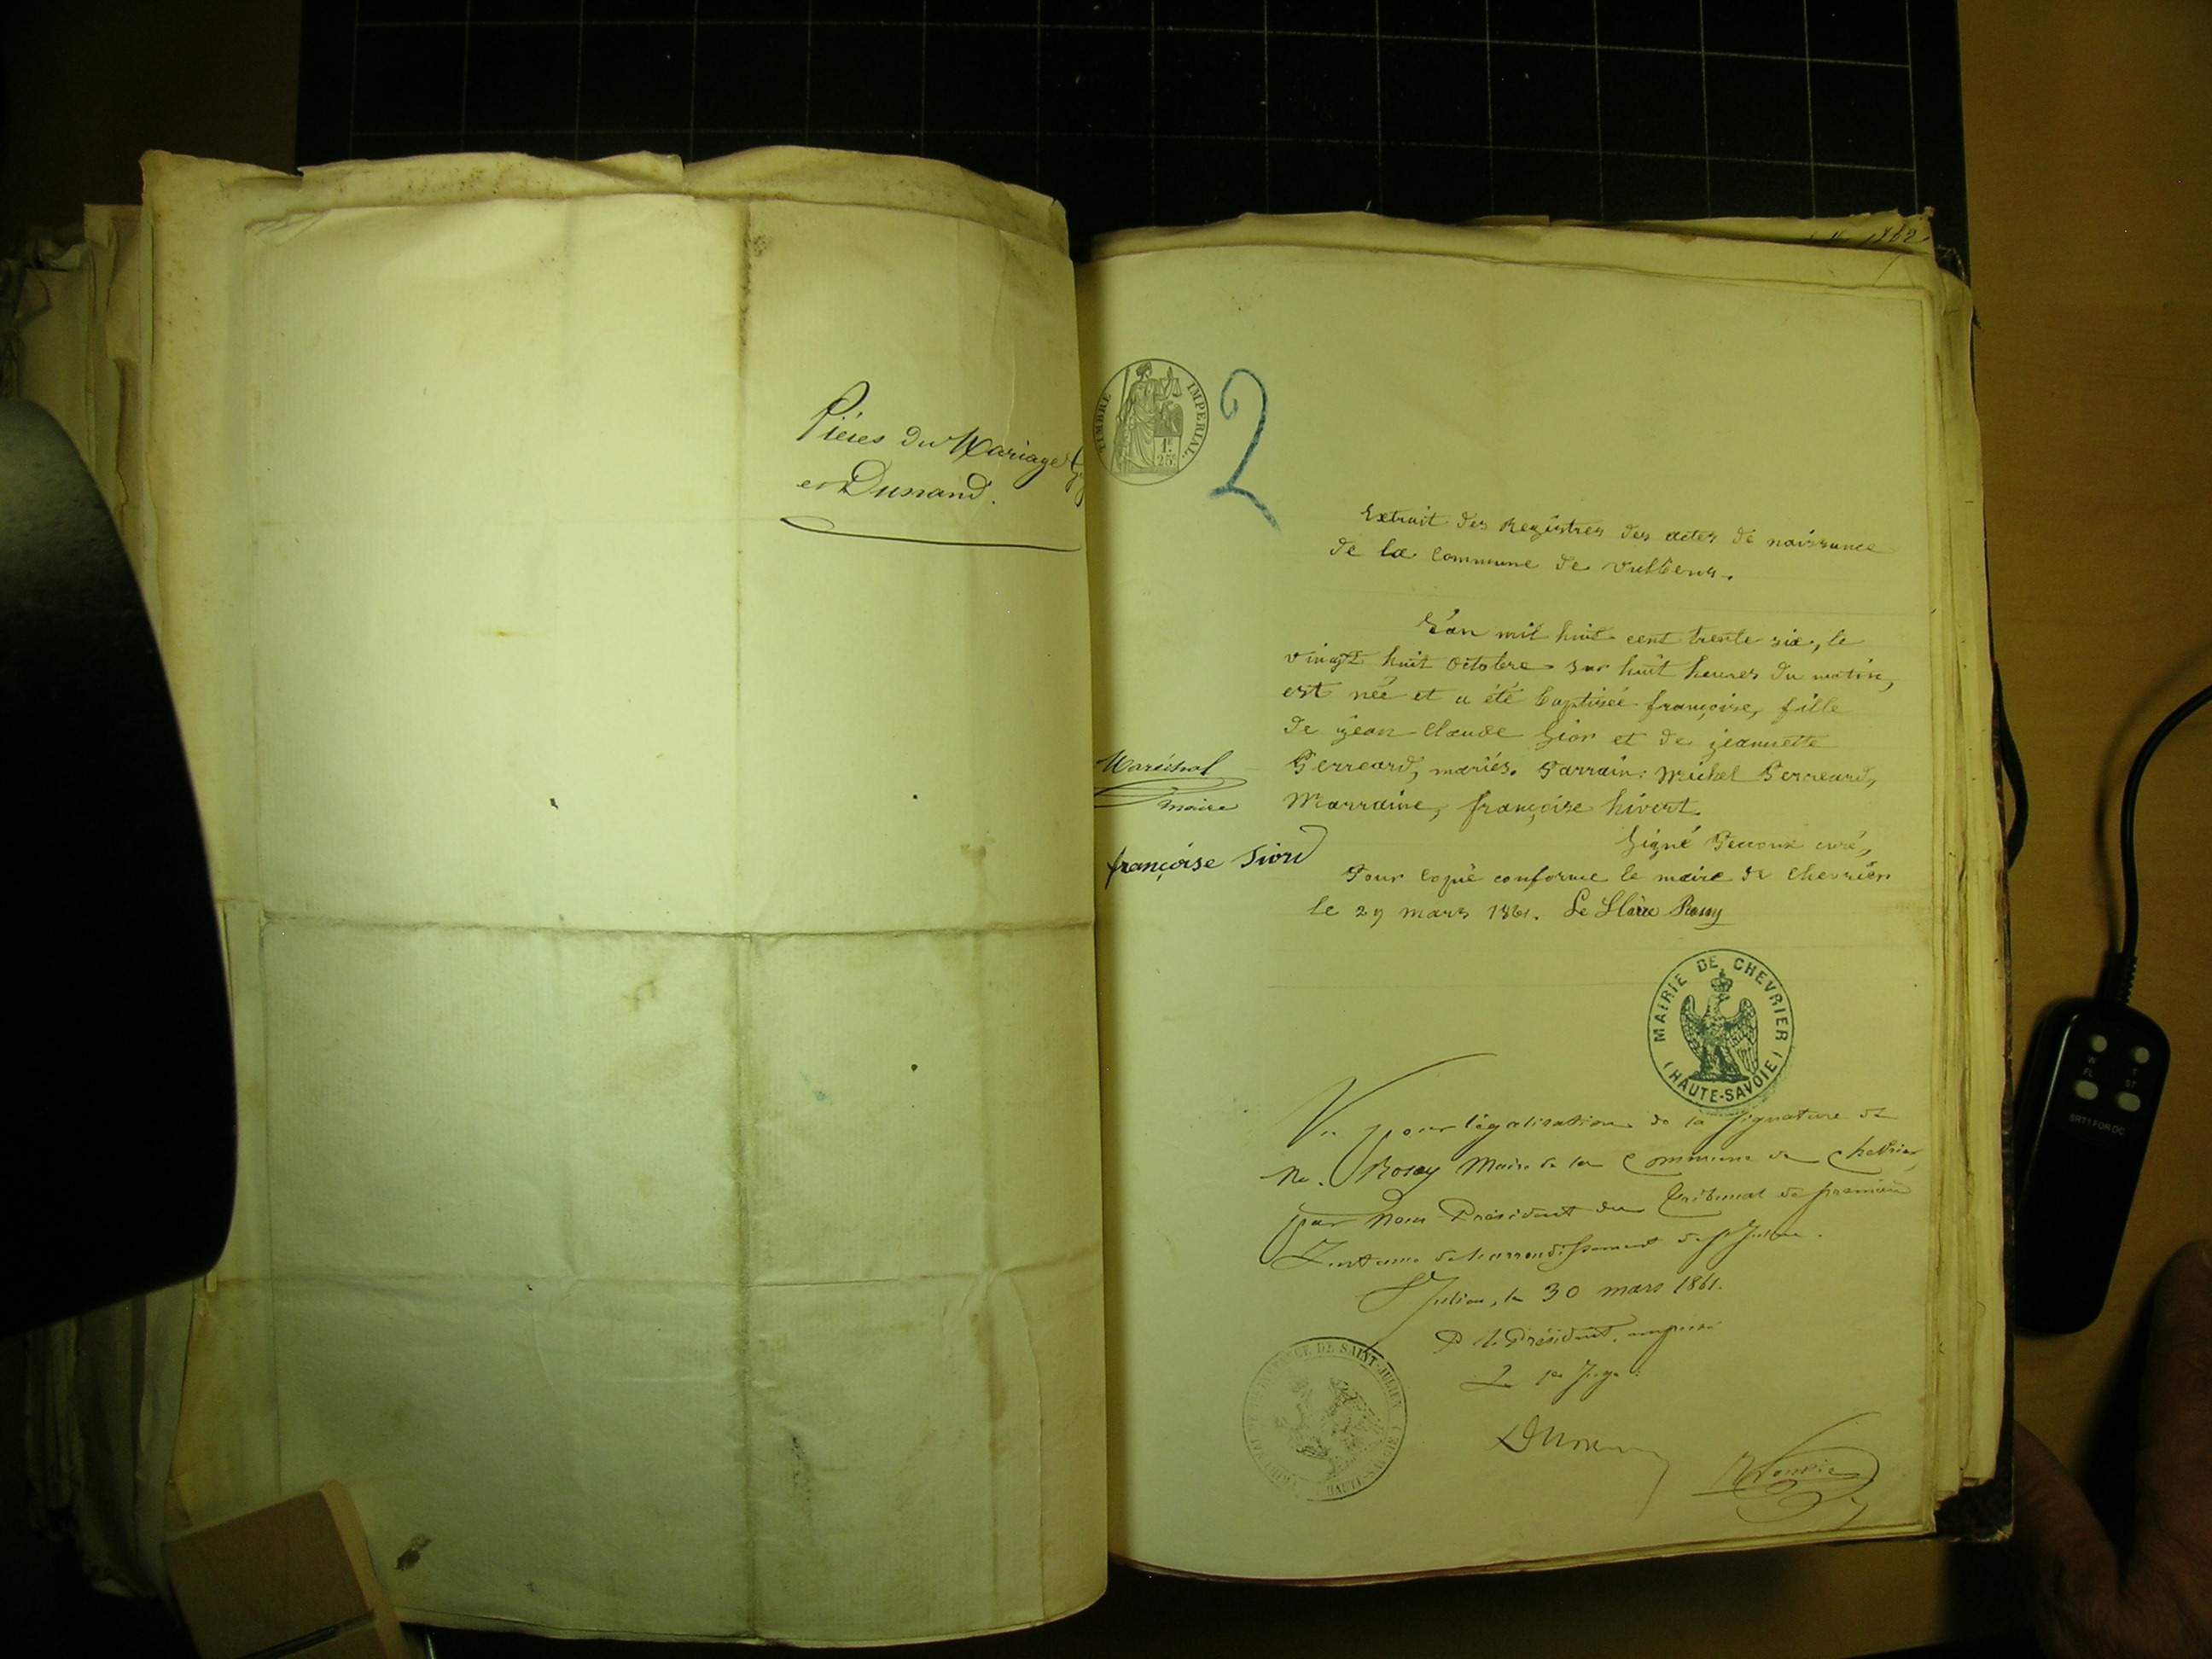 Pièces du Mariage
et Dunand.
TIMBRE IMPERIAL.
1F.
25c
2
1862
Extrait des Registres des actes de naissance
de la commune de Vulbens.
L'an mil huit cent trente six, le
vingt huit octobre sur huit heures du matin,
est née et a été baptisée françoise, fille
de jean-Claude Sion et de jeannette
Perreard, mariés. Parrain: Michel Perreard,
Marraine, françoise hivert.
Signé curé,
Pour copie conforme le maire de Chevrier
le 29 mars 1861. Le Maire Rosay
Maréchal
maire
françoise Sion
MAIRIE DE CHEVRIER
(HAUTE-SAVOIE)
Vu pour légalisation de la signature de
M. Rosay Maire de la Commune de Chevrier,
par Nous Président du Tribunal de première
Instance de l'arrondissement de St Julien.
St Julien, le 30 mars 1861.
P. le Président, empêché
Le 1er Juge
DE SAINT-JULIEN
HAUTE-SAVOIE
SR71 FOR DC